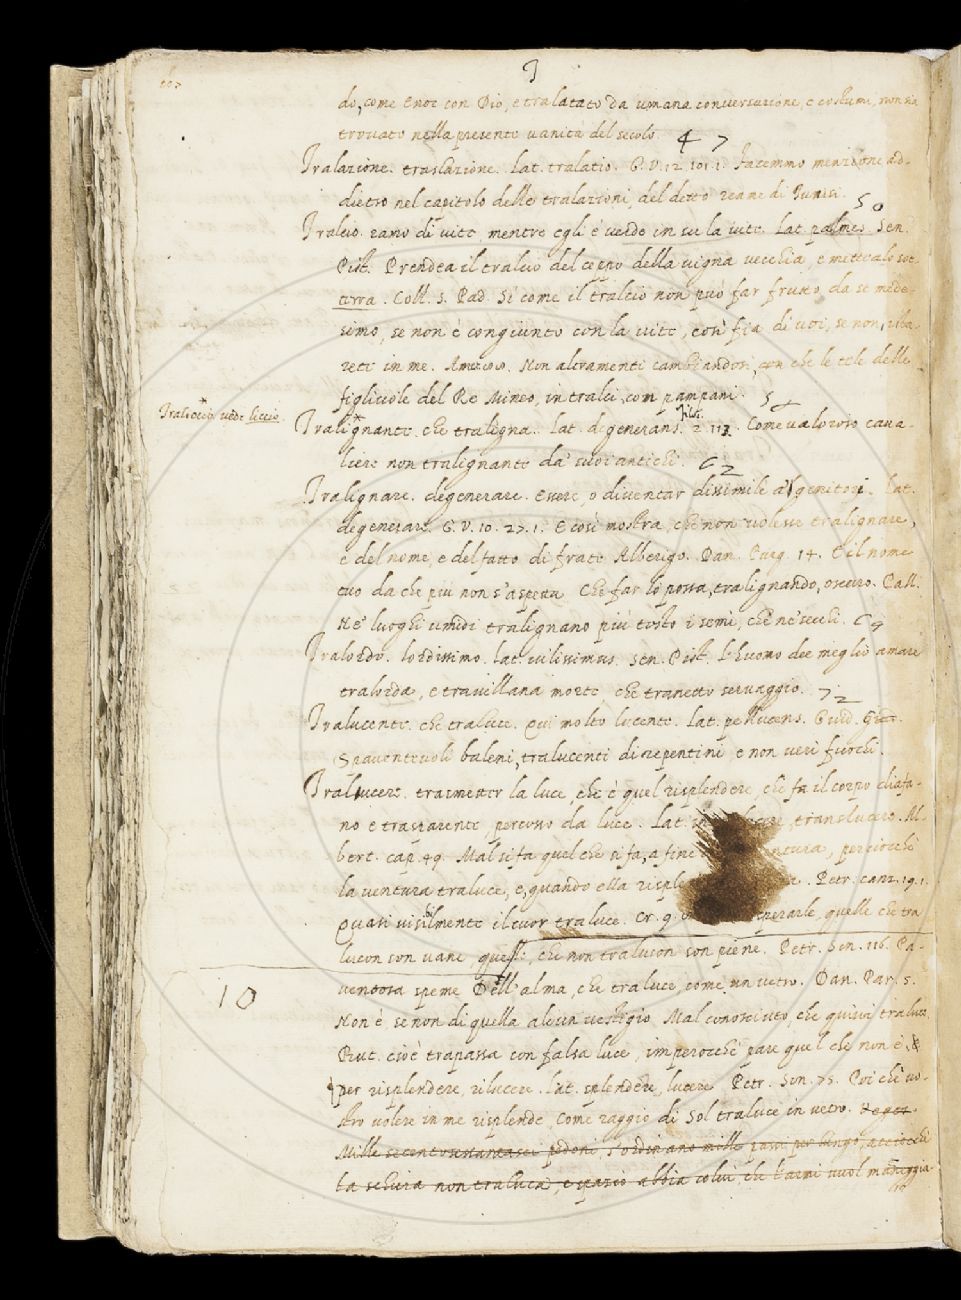 3
do, come Enoc con Dio, e tralatato da umana conversazione, e costumi, non sia
trovato nella presente vanità del secolo.
47
Tralazione. traslazione. Lat. tralatio. G.V. 12. 101. 1. Facemmo menzione ad-
dietro nel capitolo delle tralazioni del detto reame di Tunisi.
50
Tralcio. ramo di vite, mentre egli è verde in su la vite. Lat. palmes. Sen.
Pist. Prendea il tralcio del ceppo della vigna vecchia, e mettealo sot-
terra. Coll. S. Pad. Si come il tralcio non può far frutto da se mede-
simo, se non è congiunto con la vite, così fia di voi, se non
rete in me. Ameto. Non altramenti cambiandosi, con che le tele delle
figliuole del Re Mineo, in tralci, con pampani.
Traliccio vedi liccio.
Tralignante. che traligna. Lat. degenerans. Filoc. 2. 113. Come valoroso cava-
liere non tralignante da' suoi antichi.
62
Tralignare. degenerare. Essere, o diventar dissimile a' genitori. Lat.
degenerare. G.V. 10. 27. 1. E così mostra, che non volesse tralignare,
e del nome, e del fatto di frate Alberigo. Dan. Purg. 14. E il nome
tuo da che più non s'aspetta Che far lo possa, tralignando, oscuro. Pall.
Ne' luoghi umidi tralignano più tosto i semi, che ne' secchi.
69
Tralordo. lordissimo. Lat. vilissimus. Sen. Pist. L'huomo dee meglio amare
tralorda, e travillana morte che tranetto servaggio.
72
Tralucente. che traluce. Qui molto lucente. Lat. pellucens. Guid. Giud.
Spaventevoli baleni, tralucenti di repentini, e non veri fuochi.
Tralucere. trasmetter la luce, che è quel risplendere, che fa il corpo diafa-
no e trasparente, percosso da luce. Lat. translucere. Al-
bert. cap. 49. Mal si fa quel che si fa, a fine ventura, perciocchè
la ventura traluce, e, quando ella Petr. canz. 19. 1.
Quasi visibilmente il cuor traluce. Cr. 9. sperarle, quelle che tra
lucon son vane, queste, che non tralucon son piene. Petr. Son. 116. Pa-
10
ventosa speme Dell'alma, che traluce, come un vetro. Dan. Par. 5.
Non è, se non di quella alcun vestigio Mal conosciuto, che quivi traluce
But. cioè trapassa con falsa luce, imperocchè pare quel che non è.
per risplendere, rilucere. Lat. splendere, lucere Petr. Son. 75. Poi che vo-
stro volere in me risplende, Come raggio di Sol traluce in vetro.
Mille secentosettantasei pedoni, s'ordinano mille passi per lungo, acciocchè
la schiera non traluca, e spazio abbia colui, che l'armi vuol maneggia-